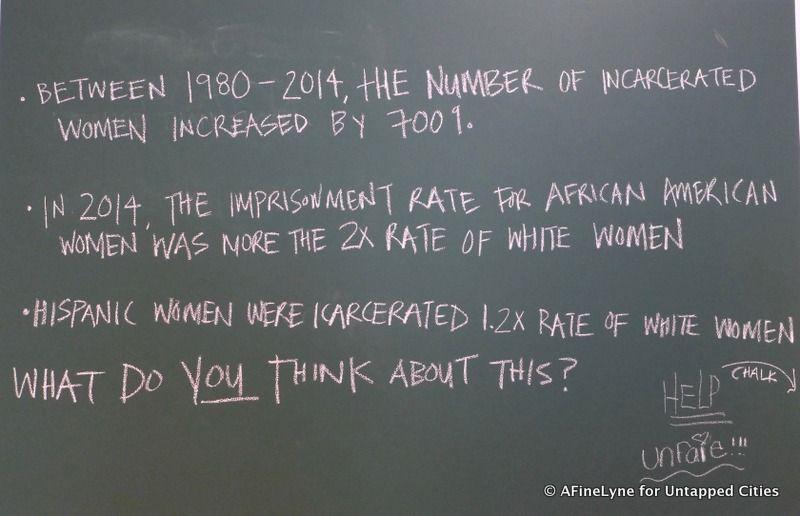 • BETWEEN 1980-2014, THE NUMBER OF INCARCERATED
WOMEN INCREASED BY 700%.
• IN 2014, THE IMPRISONMENT RATE FOR AFRICAN AMERICAN
WOMEN WAS MORE THE 2X RATE OF WHITE WOMEN
• HISPANIC WOMEN WERE ICARCERATED 1.2X RATE OF WHITE WOMEN
WHAT DO YOU THINK ABOUT THIS?
CHALK
HELP
unfair!!!
© AFineLyne for Untapped Cities